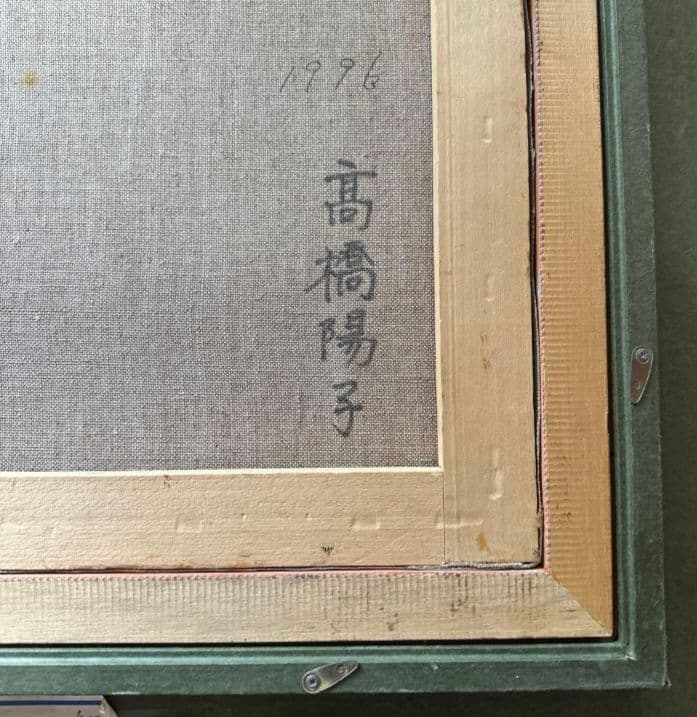 1996
髙橋陽子